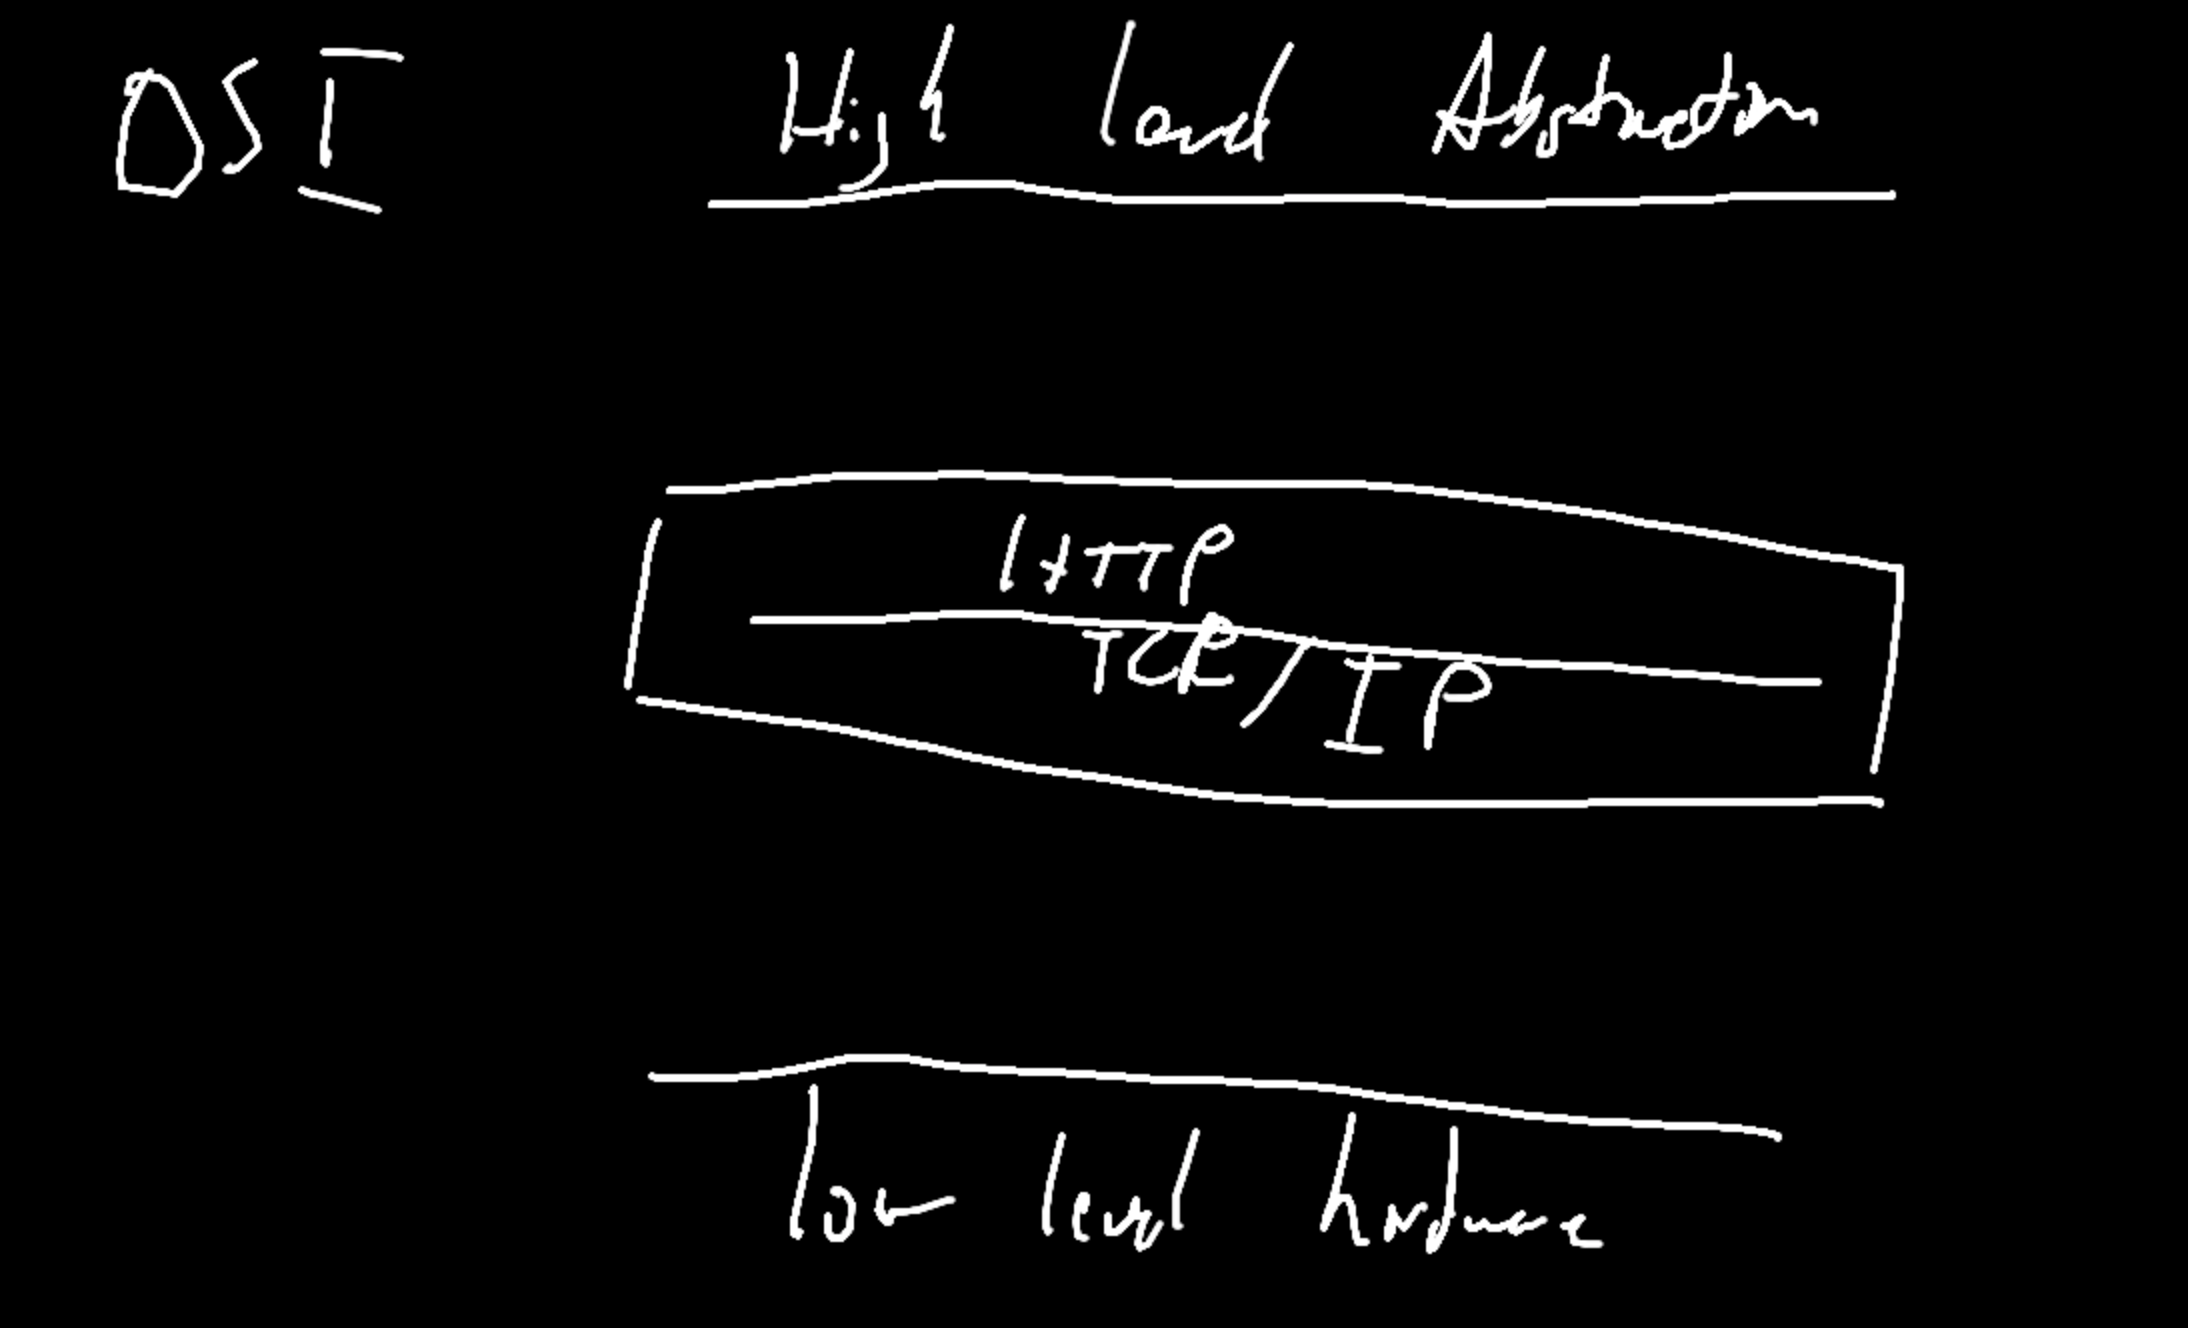 OSI
High level Abstraction
HTTP
TCP/IP
low level hardware